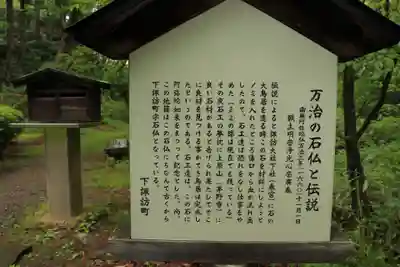 万治の石仏と伝説
南無阿弥陀仏万治三年(一六六〇)十一月一日
願主明誉浄光心誉廣春
伝説によると諏訪大社下社(春宮)に石の
大鳥居を造る時この石を材料にしようと
ノミを入れたところ傷口から血が流れ出
したので、石工達は恐れをなし仕事をや
めた(ノミの跡は現在でも残っている)
その夜石工の夢枕に上原山(茅野市)に
良い石材があると告げられ果してそこ
に良材を見つける事ができ鳥居は完成し
たというのである。石工達は、この石に
阿弥陀如来をまつって記念とした。尚、
この地籍はこの石仏にちなんで古くから
下諏訪字石仏となっている。
下諏訪町